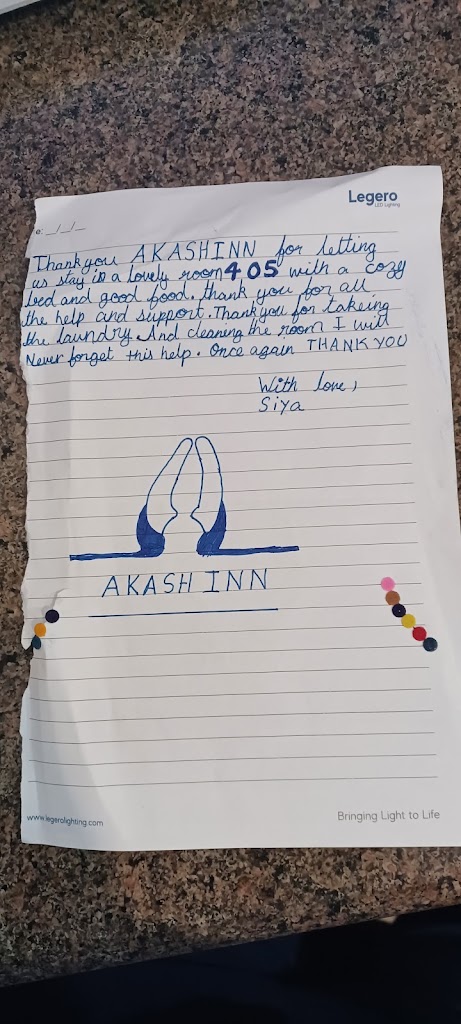 Legero
LED Lighting
e: __/__/__
Thank you AKASHINN for letting
us stay in a lovely room 405 with a cozy
bed and good food. thank you for all
the help and support. Thank you for takeing
the laundry. And cleaning the room I will
Never forget this help. Once again THANK YOU
With love,
Siya
AKASH INN
www.legerolighting.com
Bringing Light to Life